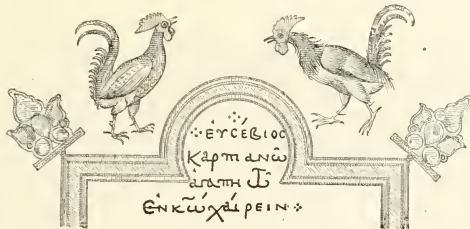 ⁘ ΕΥΣΕΒΙΟΣ
ΚΑΡΠΙΑΝῼ
ἀγαπητῷ
ἐν κ͞ω χαίρειν ⁘